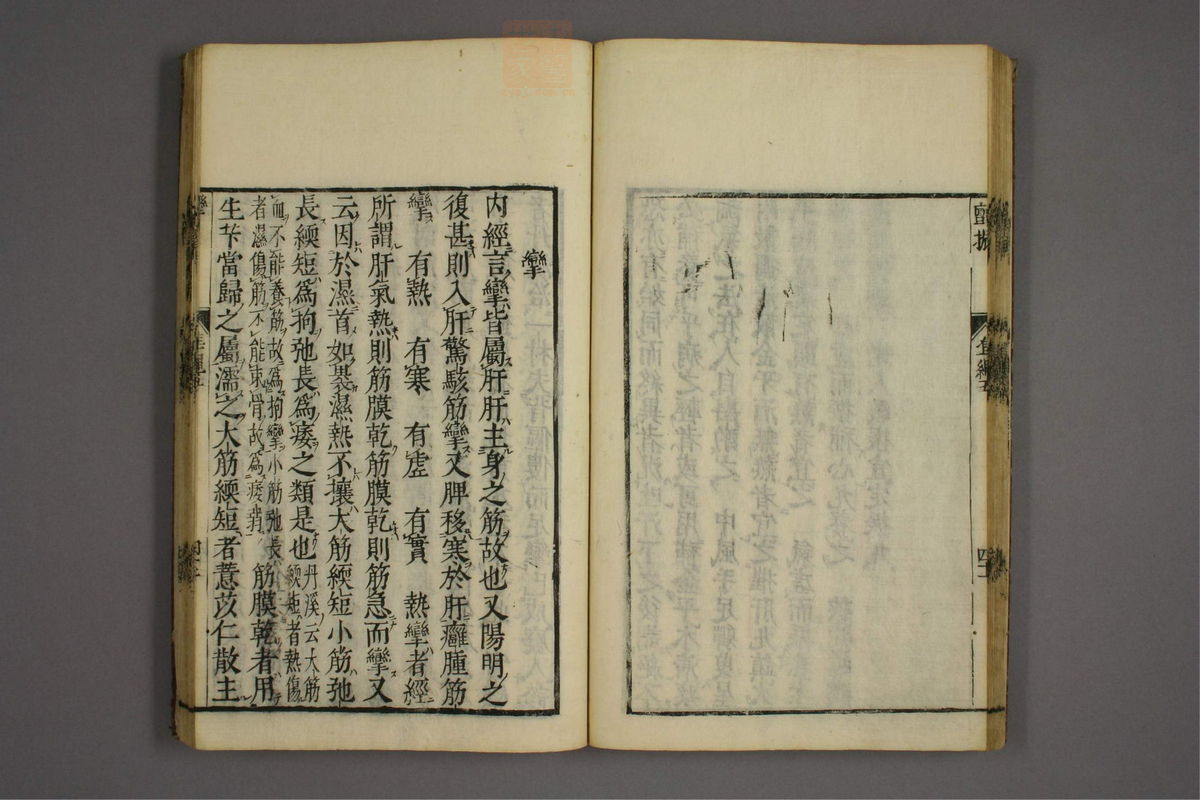 攣
内經言攣皆屬肝肝主身之筋故也又陽明之
復甚則入肝驚駭筋攣又脾移寒於肝癰腫筋
攣　有熱　有寒　有虛　有實　熱攣者經
所謂肝氣熱則筋膜乾筋膜乾則筋急而攣又
云因於濕首如裹濕熱不攘大筋緛短小筋弛
長緛短爲拘弛長爲痿之類是也丹溪云大筋緛短者熱傷
血不能養筋故爲拘攣小筋弛長者濕傷筋不能束骨故爲痿弱筋膜乾者用
生芐當歸之屬濡之大筋緛短者薏苡仁散主